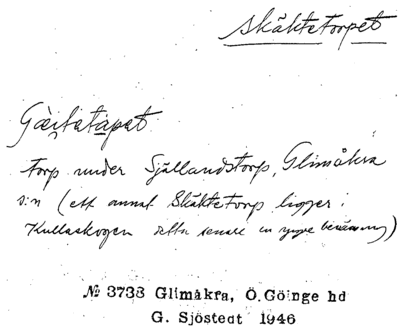 Skäktetorpet
torp under Själlandstorp, Glimåkra
s:n (ett annat Skäktetorp ligger i
Kullaskogen detta senare en yngre benämning)
№ 3733 Glimåkra, Ö. Göinge hd
G. Sjöstedt 1946